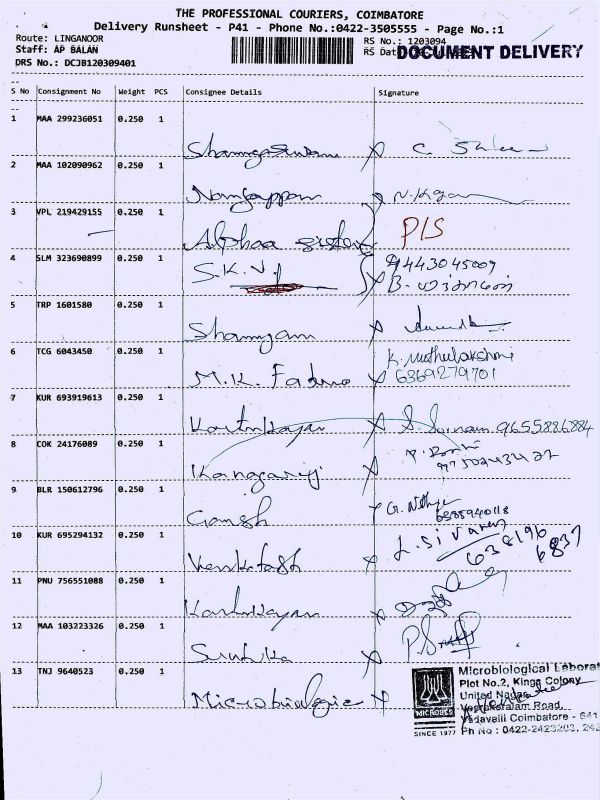 THE PROFESSIONAL COURIERS, COIMBATORE
Delivery Runsheet - P41 - Phone No.:0422-3505555 - Page No.:1
Route: LINGANOOR
RS No.: 1203094
Staff: AP BALAN
RS Dat
DOCUMENT DELIVERY
DRS No.: DCJB120309401
S No Consignment No Weight PCS Consignee Details Signature
1 MAA 299236051 0.250 1
Shanmugaswami
2 MAA 102090962 0.250 1
Nanjappan
3 VPL 219429155 0.250 1
Alphaa sister P/S
4 SLM 323690899 0.250 1
S.K.V. 9443045009
5 TRP 1601580 0.250 1
Shanmugam
6 TCG 6043450 0.250 1
K. Muthulakshmi
M.K. 6369279701
7 KUR 693919613 0.250 1
Karthikayan 9655886884
8 COK 24176089 0.250 1
9 BLR 150612796 0.250 1
Ganesh G. Nithya
10 KUR 695294132 0.250 1
Venkatesh 638196
6837
11 PNU 756551088 0.250 1
Karthikayan
12 MAA 103223326 0.250 1
13 TNJ 9640523 0.250 1
Microbiological Laborat
Plot No.2, Kings Colony
United Nagar
Veerakeralam Road,
Vadavalli Coimbatore - 641
MICROBICS
SINCE 1977
Ph No : 0422-2423203, 242
Microbiologie